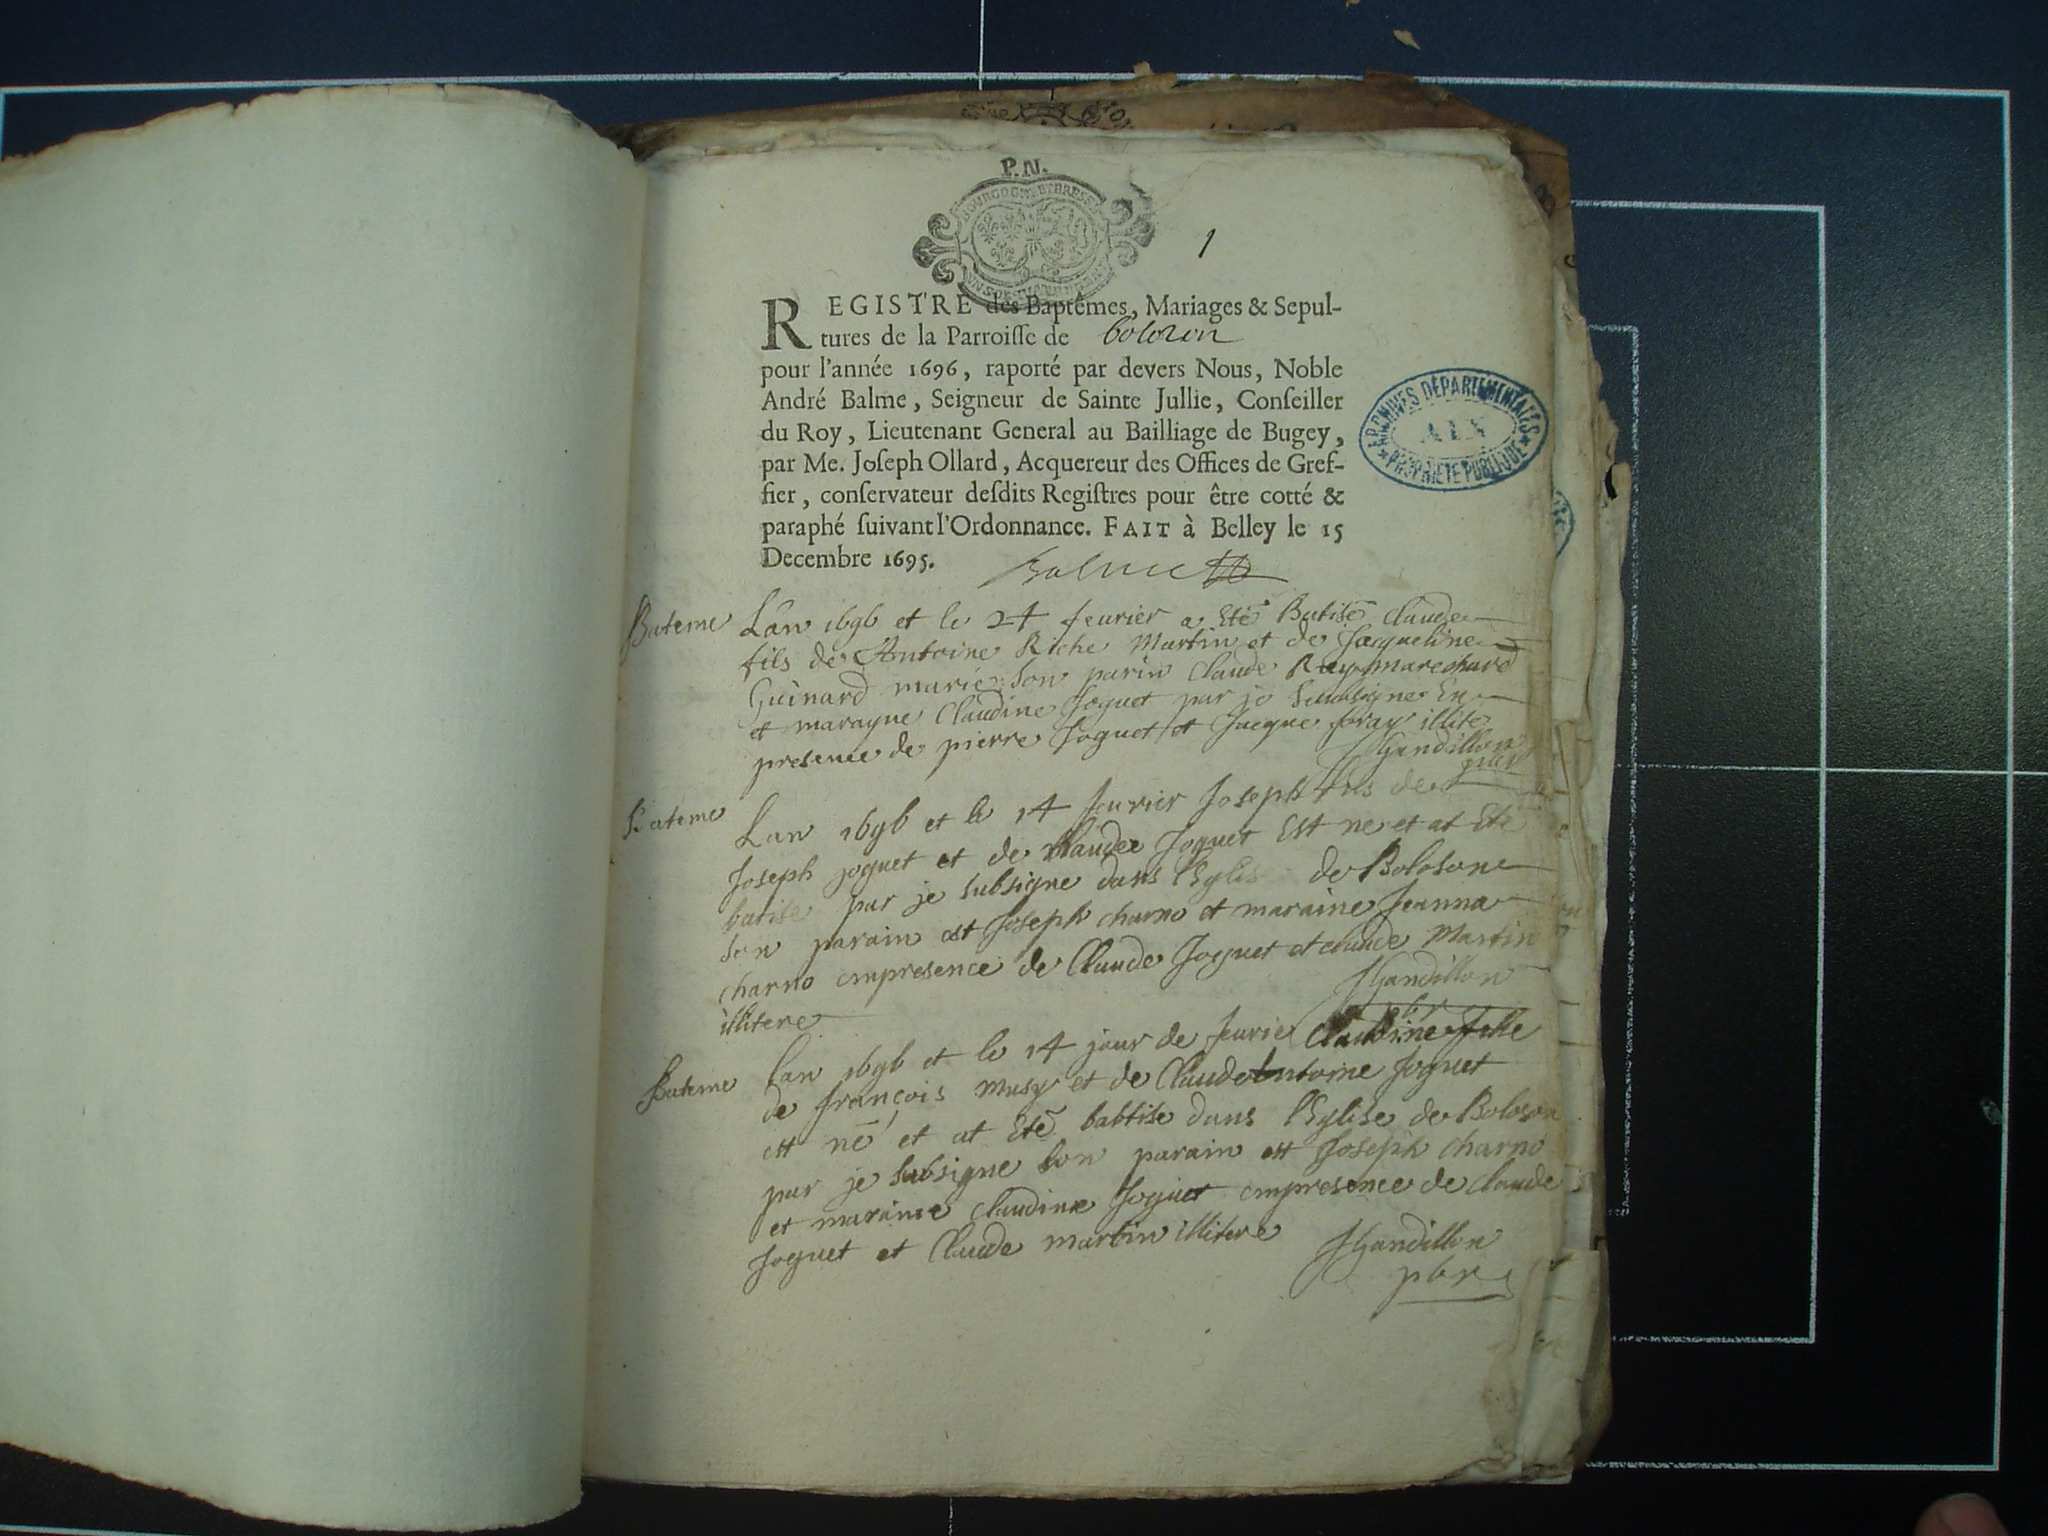 P.N.
BOURGOGNE ET BRESSE
1
REGISTRE des Baptêmes, Mariages & Sepul-
tures de la Parroisse de bolozon
pour l'année 1696, raporté par devers Nous, Noble
André Balme, Seigneur de Sainte Jullie, Conseiller
du Roy, Lieutenant General au Bailliage de Bugey,
par Me. Joseph Ollard, Acquereur des Offices de Gref-
fier, conservateur desdits Registres pour être cotté &
paraphé suivant l'Ordonnance. FAIT à Belley le 15
Decembre 1695. Balme
ARCHIVES DÉPARTEMENTALES
AIN
PROPRIÉTÉ PUBLIQUE
Bateme Lân 1696 et le 24 feurier a Eté Batisé Claude
fils de Antoine Riche Martin et de Jacqueline
Guinard marié son parin Claude Ray marechard
et marayne Claudine Joguet par je soubsigne En
presence de pierre Joguet et Jacque foray illite
JGandillon
pbr
Bateme Lan 1696 et le 14 feurier Joseph fils de
Joseph joguet et de Claudee Joguet Est ne et at Eté
batise par je subsigne dans l'Eglis de Boloson
son parain est Joseph charno et maraine Jeanna
charno empresence de Claude Joguet et claude Martin
illitere JGandillon
pbr
Bateme Lan 1696 et le 14 jour de feurie Claudine fille
de françois Musy et de Claude Antoine Joguet
est né et at Eté babtise dans l'Eglise de Boloson
par je subsigne son parain est Joseph charno
et maraine Claudine Joguet empresence de Claude
Joguet et Claude martin illitere JGandillon
pbr